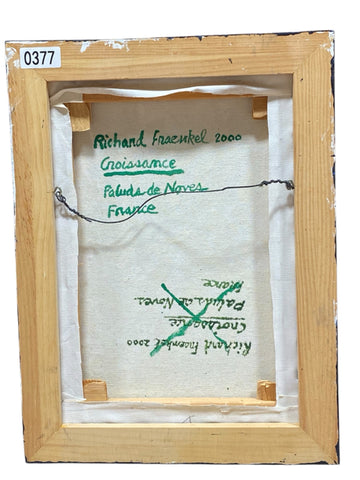 0377
Richard Fraenkel 2000
Croissance
Paluds de Noves
France
Richard Fraenkel 2000
Croissance
Paluds de Noves
France